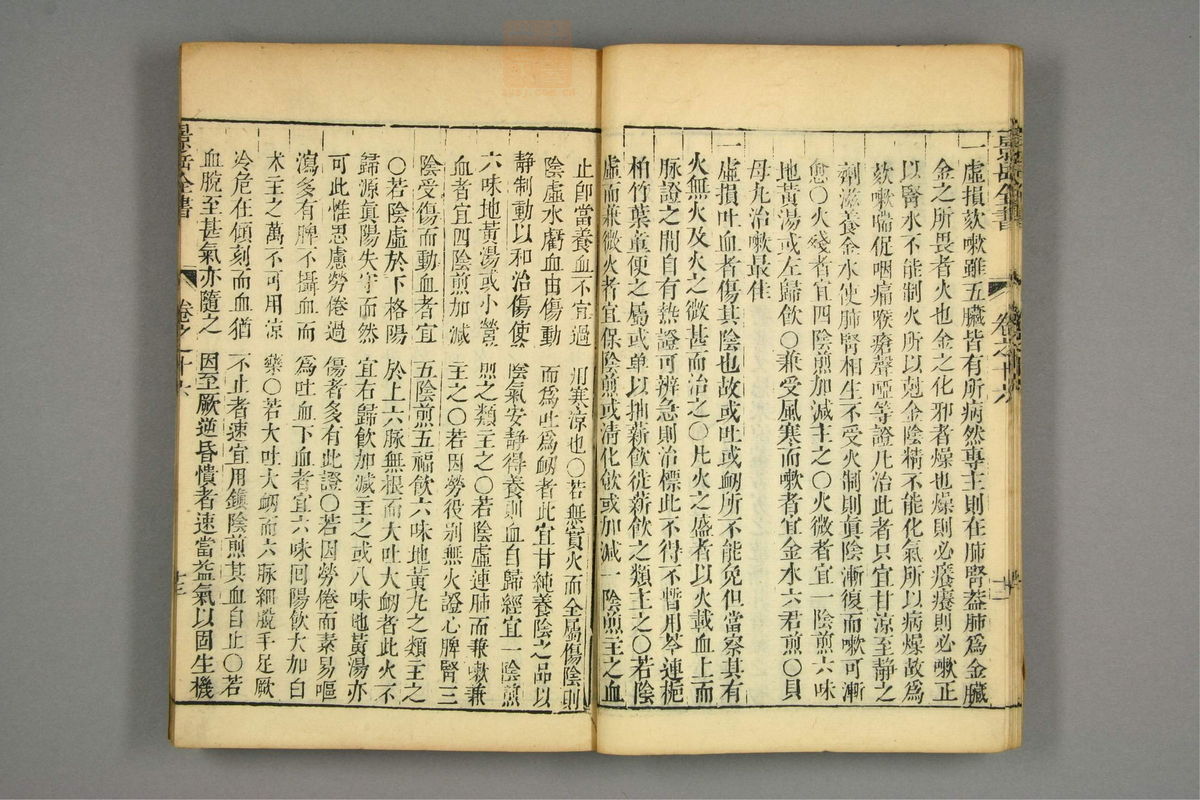 景岳全書
卷之十六
一虛損欬嗽雖五臟皆有所病然專主則在肺腎葢肺爲金臟
金之所畏者火也金之化邪者燥也燥則必癢癢則必嗽正
以腎水不能制火所以尅金陰精不能化氣所以病燥故爲
欬嗽喘促咽痛喉瘡聲啞等證凢治此者只宜甘凉至静之
劑滋養金水使肺腎相生不受火制則眞陰漸復而嗽可漸
愈〇火殘者宜四陰煎加減主之〇火微者宜一陰煎六味
地黃湯或左歸飲〇兼受風寒而嗽者宜金水六君煎〇貝
母丸治嗽最佳
一虛損吐血者傷其陰也故或吐或衂所不能免但當察其有
火無火及火之微甚而治之〇凢火之盛者以火載血上而
脉證之間自有热證可辨急則治標此不得不暫用芩連梔
柏竹葉童便之屬或单以抽薪飲徙薪飲之類主之〇若陰
虛而兼微火者宜保陰煎或清化飲或加減一陰煎主之血
止卽當養血不宜過用寒凉也〇若無實火而全屬傷陰則
陰虛水虧血由傷動而爲吐爲衂者此宜甘純養陰之品以
静制動以和治傷使陰氣安静得養則血自歸經宜一陰煎
六味地黃湯或小營煎之類主之〇若陰虛連肺而兼嗽兼
血者宜四陰煎加減主之〇若因勞役别無火證心脾腎三
陰受傷而動血者宜五陰煎五福飲六味地黃丸之類主之
〇若陰虛於下格陽於上六脉無根而大吐大衂者此火不
歸源眞陽失守而然宜右歸飲加減主之或八味地黃湯亦
可此惟思慮勞倦過傷者多有此證〇若因勞倦而素易嘔
瀉多有脾不攝血而爲吐血下血者宜六味回陽飲大加白
术主之萬不可用凉藥〇若大吐大衂而六脉細脫手足厥
冷危在傾刻而血猶不止者速宜用鎭陰煎其血自止〇若
血脫至甚氣亦隨之因至厥逆昏憒者速當益氣以固生機
景岳全書
卷之十六
十三